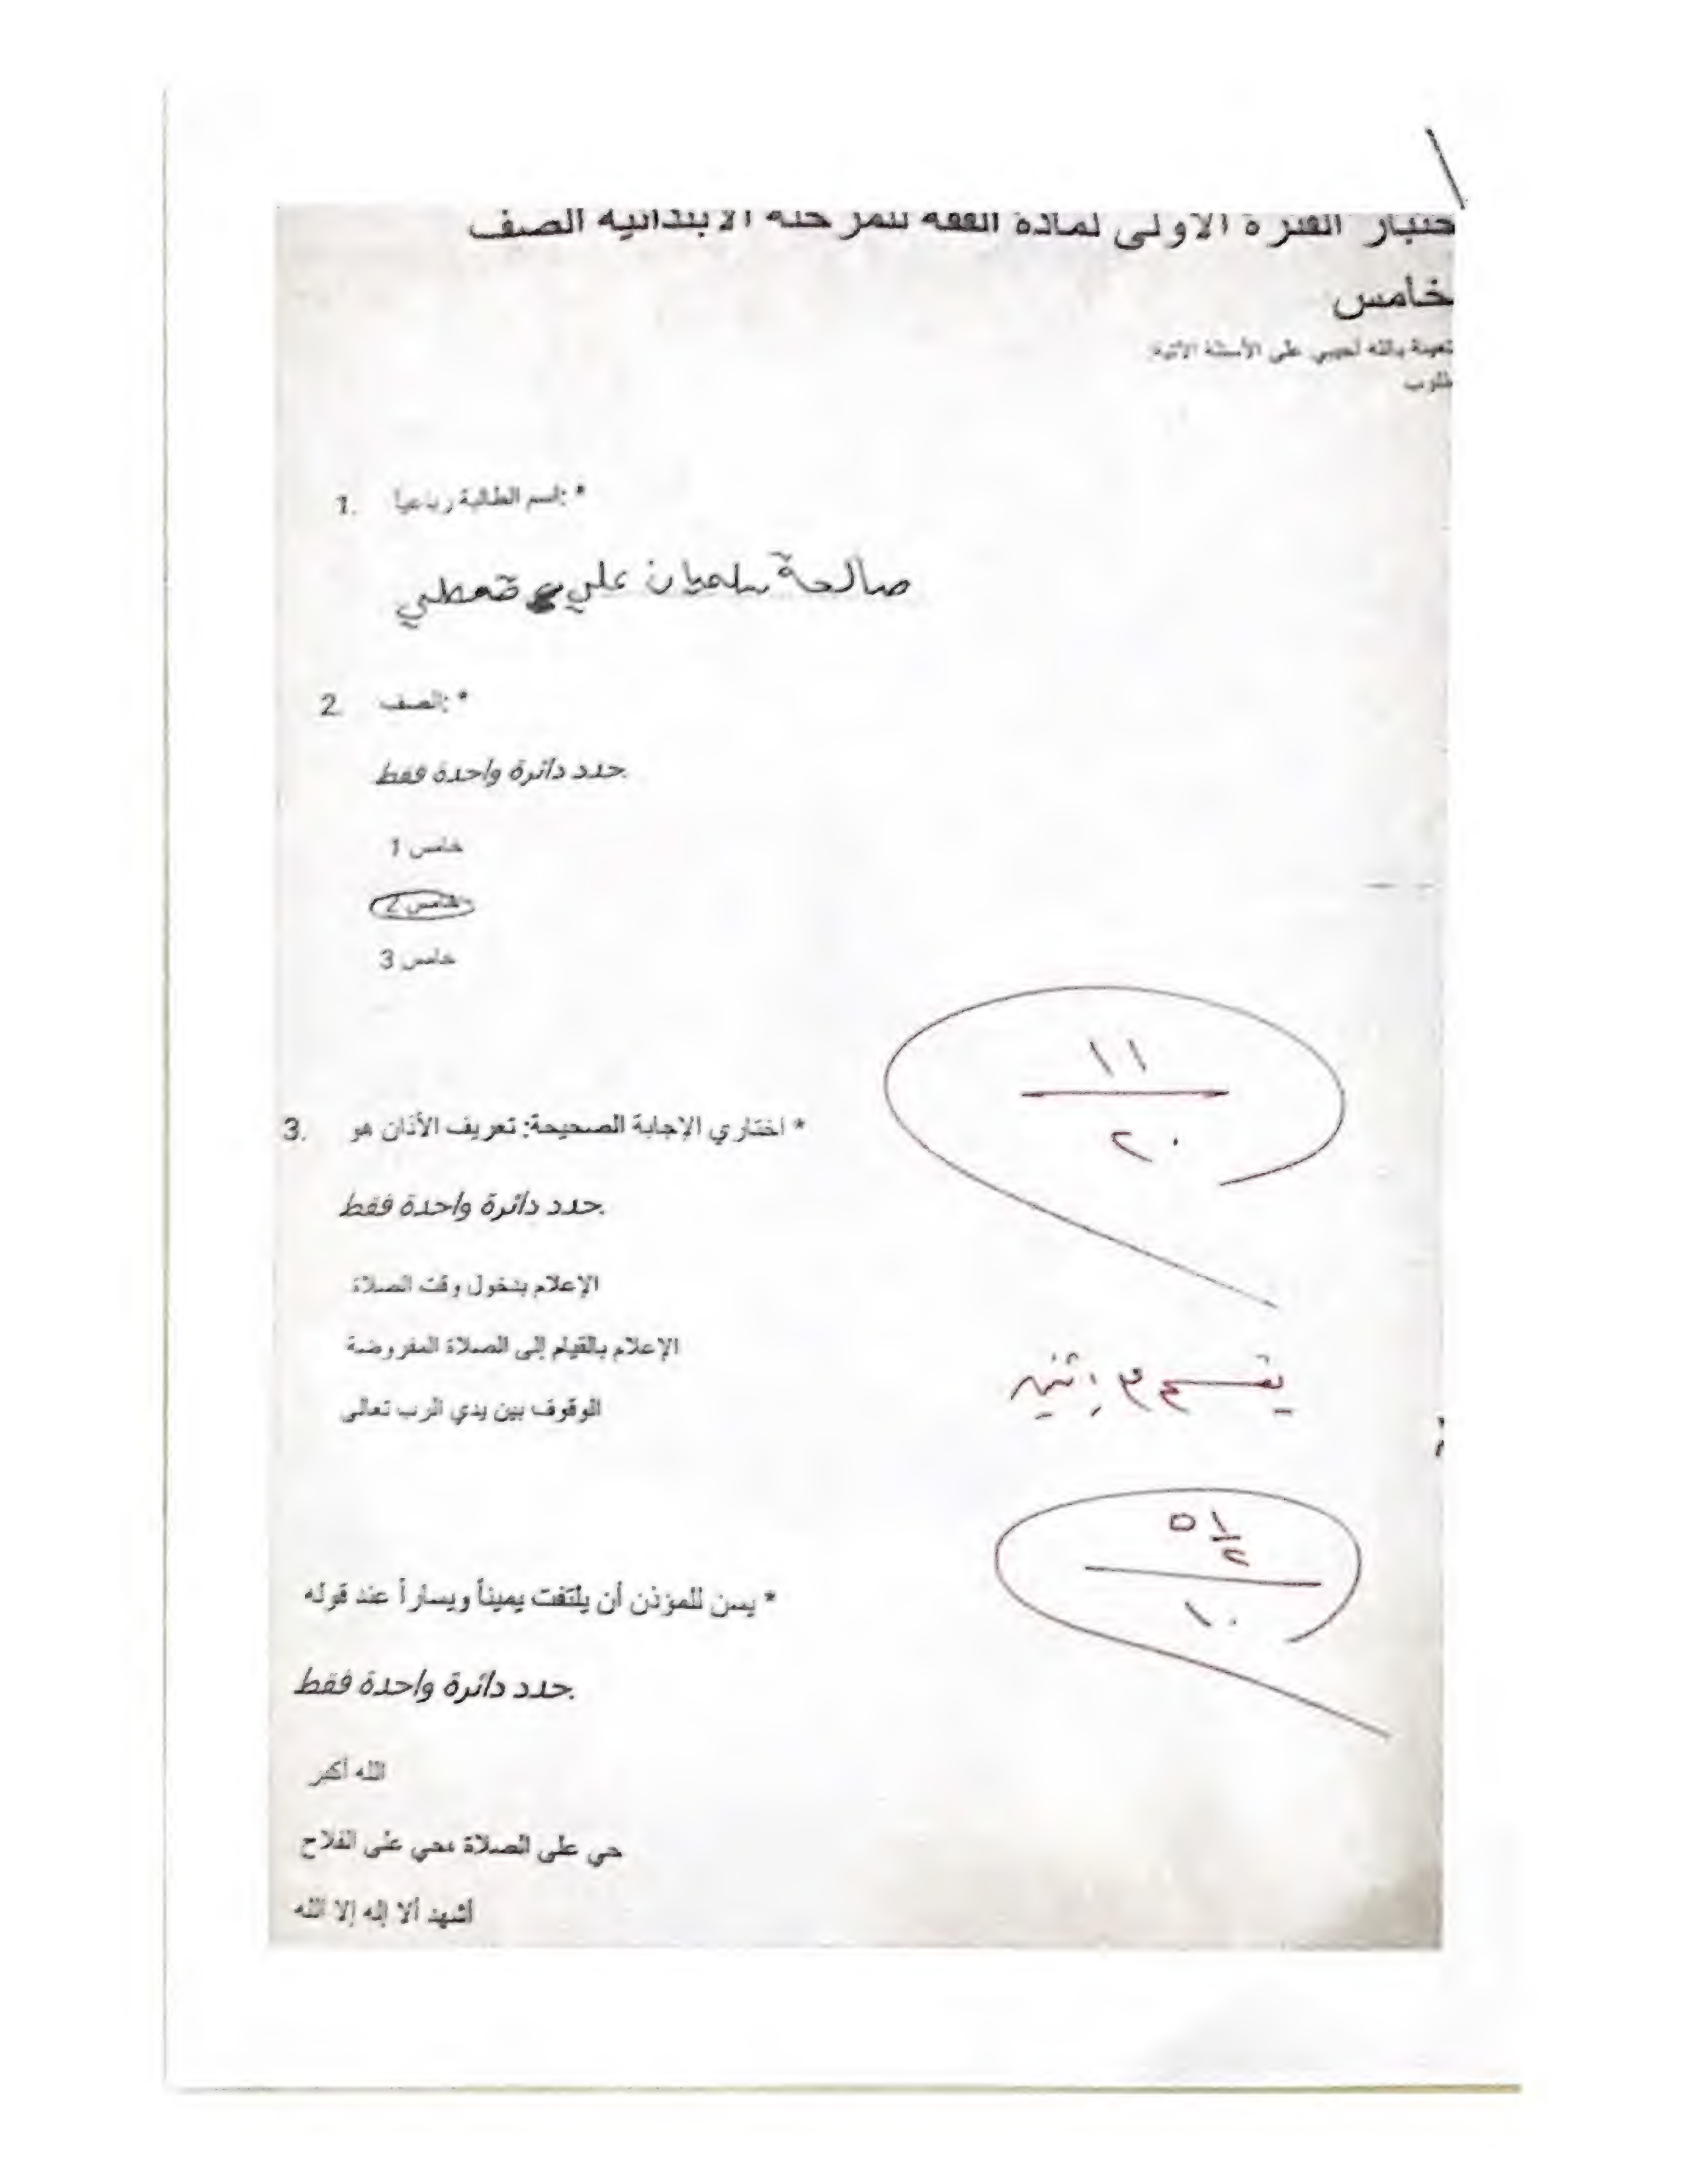 ختبار الفترة الأولى لمادة الفقه للمرحلة الابتدائية الصف
خامس
أجيبي على الأسئلة الآتية
1. اسم الطالبة رباعيا: *
صالحة سلميان علي قعطي
2. الصف: *
حدد دائرة واحدة فقط.
خامس 1
خامس 2
خامس 3
١١
٢٠
3. اختاري الإجابة الصحيحة: تعريف الأذان هو *
حدد دائرة واحدة فقط.
الإعلام بدخول وقت الصلاة
الإعلام بالقيام إلى الصلاة المفروضة
الوقوف بين يدي الرب تعالى
٥ ١/٢
١٠
يسن للمؤذن أن يلتفت يميناً ويساراً عند قوله *
حدد دائرة واحدة فقط.
الله أكبر
حي على الصلاة ،حي على الفلاح
أشهد ألا إله إلا الله